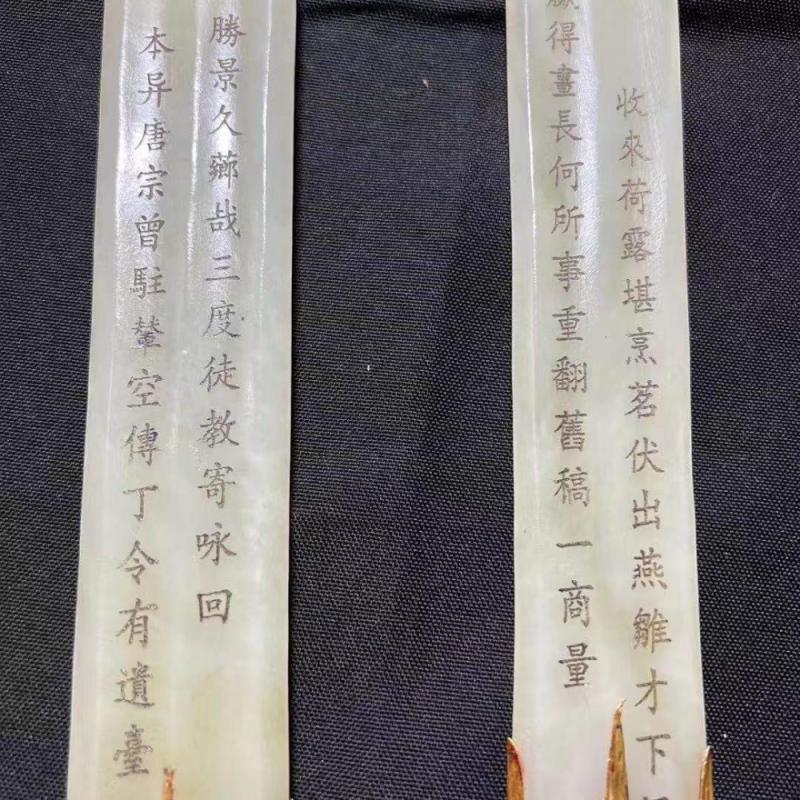 收來荷露堪烹茗伏出燕雛才下
得晝長何所事重翻舊稿一商量
勝景久薌哉三度徒教寄咏回
本异唐宗曾駐輦空傳丁令有遺臺